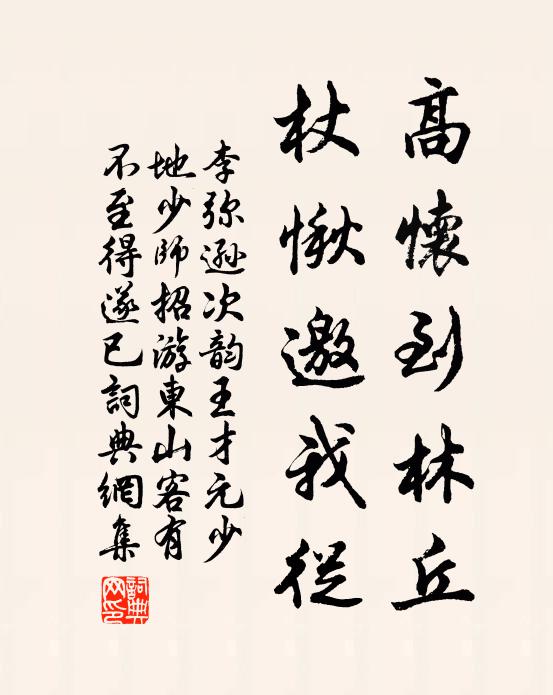 高懷到林丘
杖愀邀我從
李弥遜次韵王才元少
地少師招游東山客有
不至得遂已詞典網集
詞典
网印